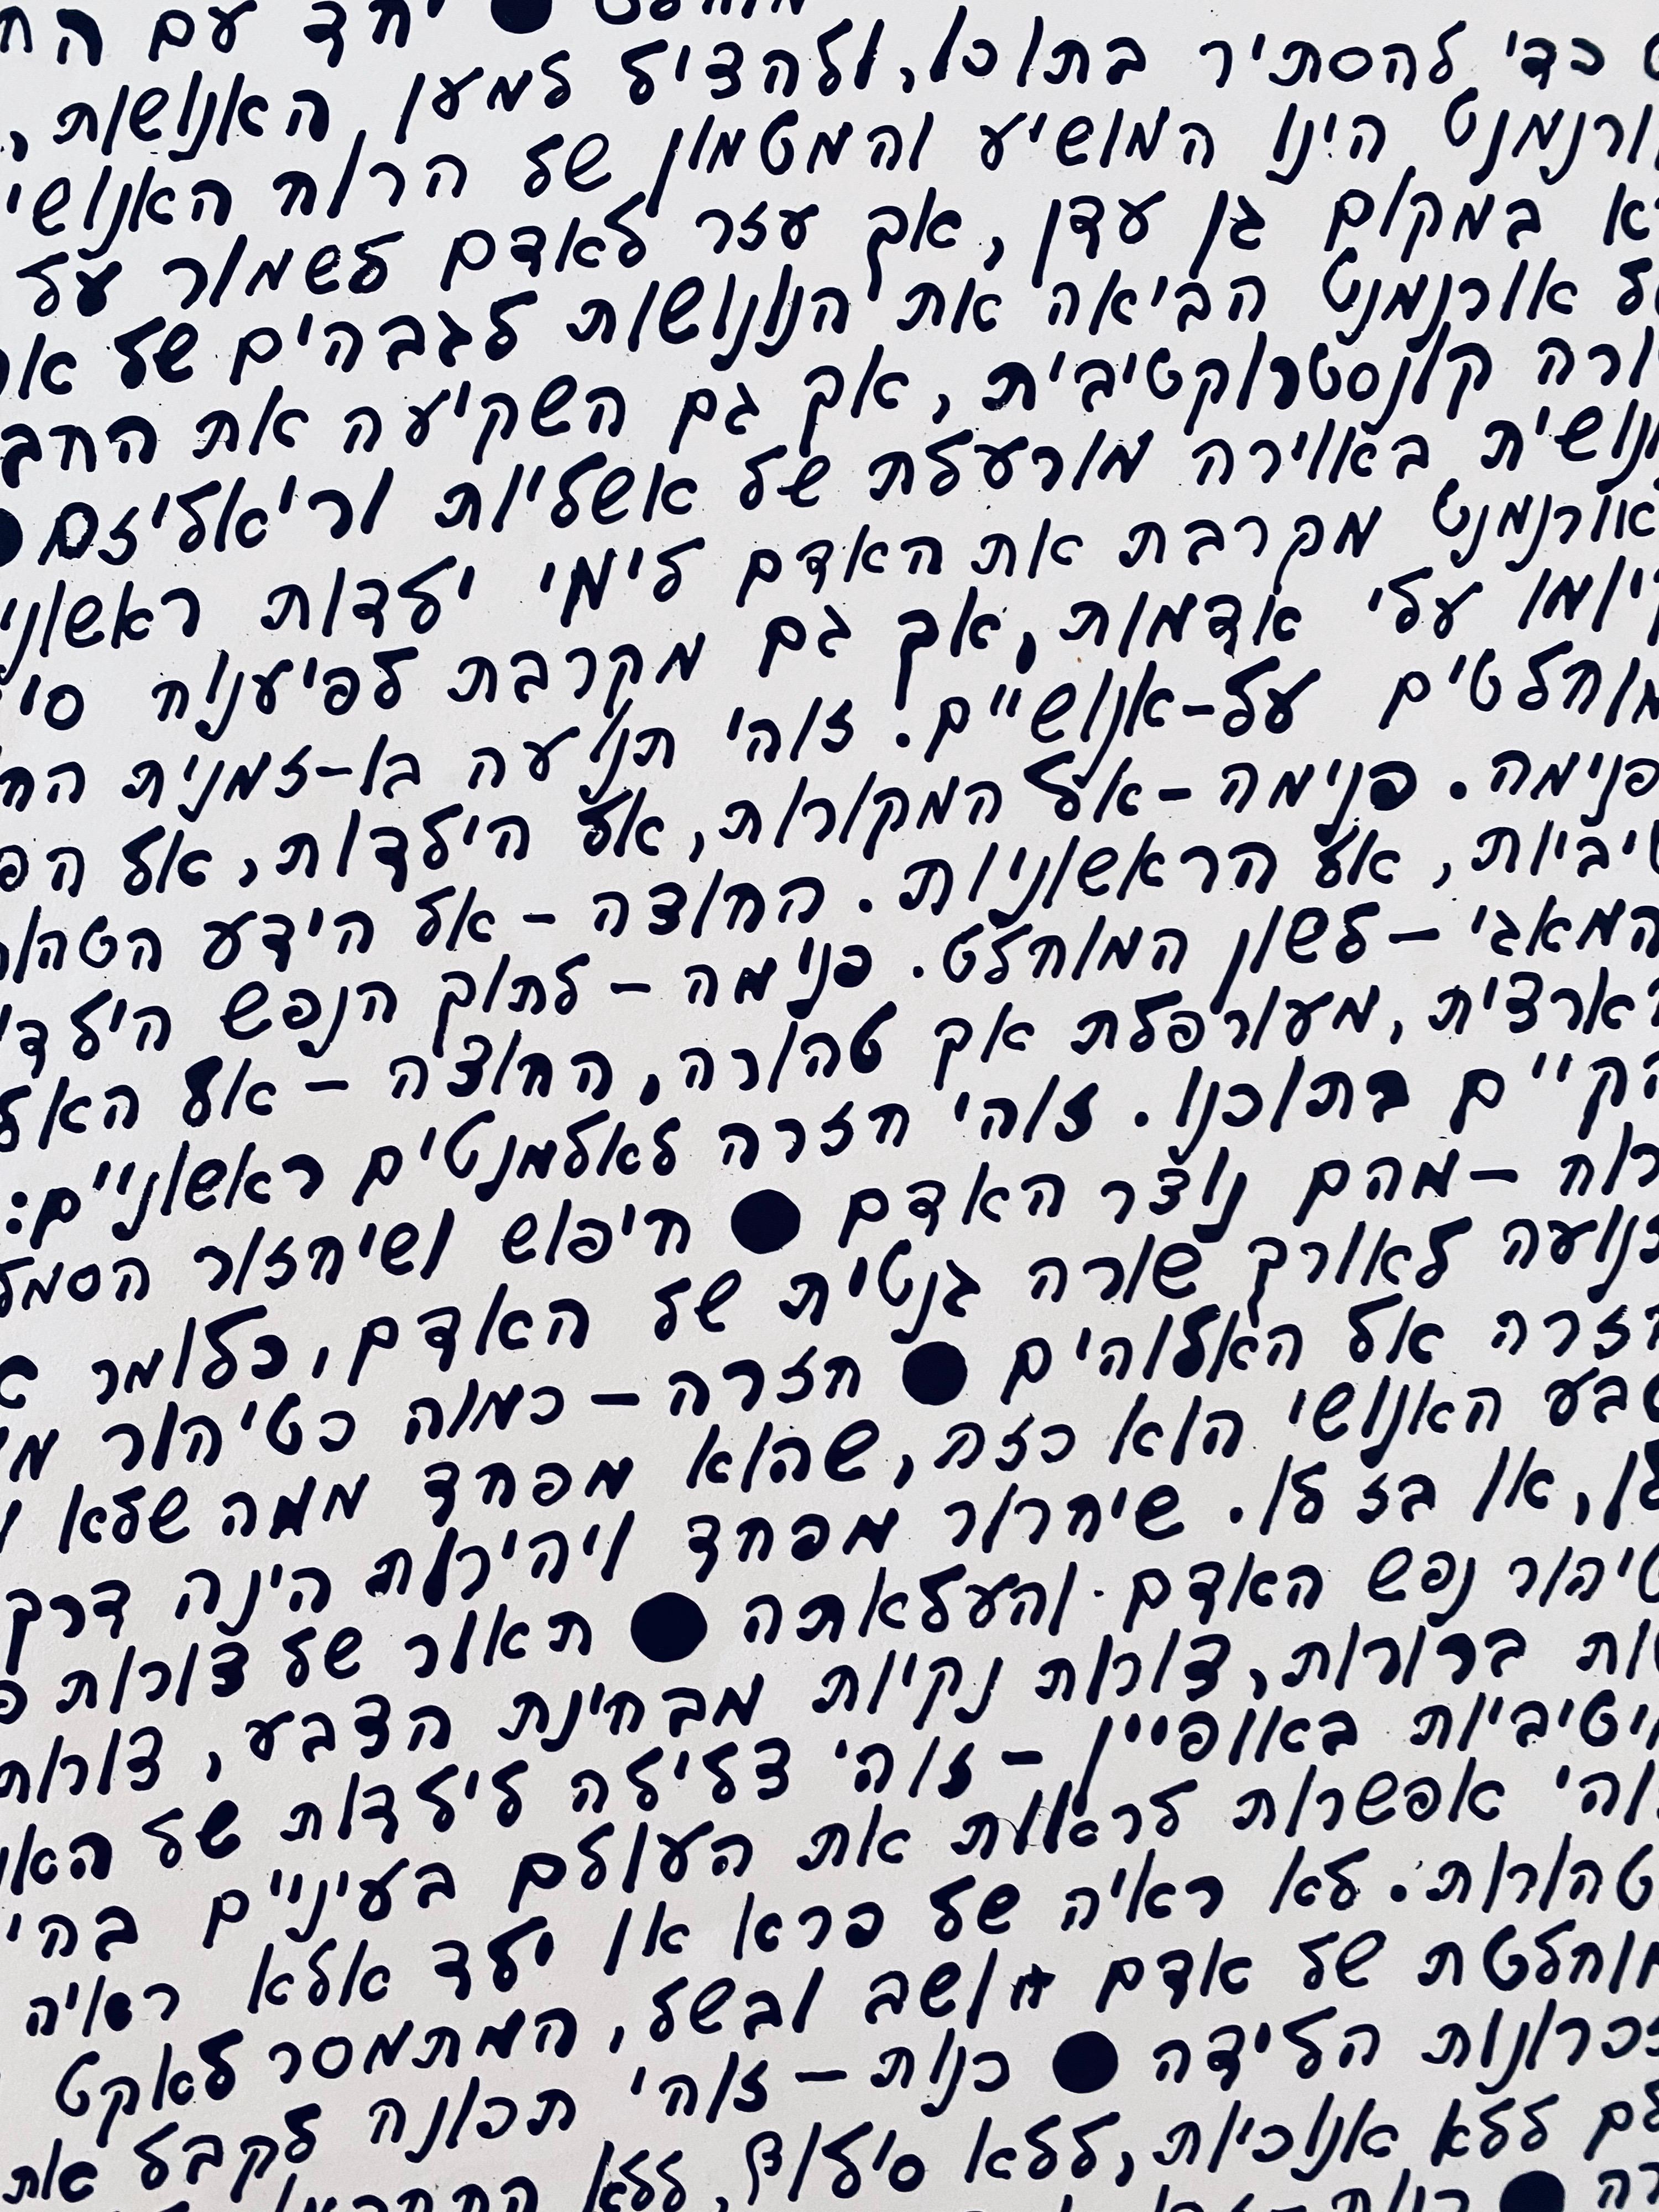 יחד עם
כדי להסתיר בתוכו, ולהציל למען האנושות,
הינו המושיע והמטמון של הרוח
במקום גן עדן, אך עזר לאדם לשמור על
אורנמנט הביאה את הנונושות לגבהים של
קונסטרוקטיבית, אך גם השקיעה את
באווירה מורעלת של אשליות וריאליזם ●
מקרבת את האדם לימי ילדות
עלי אדמות, אך גם מקרבת לפיענוח
על-אנושיים. זוהי תנועה בו-זמנית
פנימה. פנימה - אל המקורות, אל הילדות, אל
אל הראשוניות. החוצה - אל הידע
המאגי - לשון המוחלט. פנימה - לתוך הנפש
מעורפלת אך טהורה, החוצה - אל
בתוכנו. זוהי חזרה לאלמנטים ראשוניים:
- מהם נוצר האדם ● חיפוש ושיחזור
לאורך שורה גנטית של האדם, כלומר
אל האלוהים ● חזרה - כמוה כטיהור
האנושי הוא כזה, שהוא מפחד ממה שלא
או בז לו. שיחרור מפחד ויהירות הינה דרך
נפש האדם והעלאתה ● תאור של צורות
ברורות, צורות נקיות מבחינת הצבע, צורות
באופיין - זוהי צלילה לילדות של
אפשרות לראות את העולם בעיניים
טהורות. לא ראיה של פרא או ילד אלא ראיה
של אדם חושב ובשל, המתמסר לאקט
הלידה ● כנות - זוהי תכונה לקבל את
ללא אנוכיות, ללא סילוף, ללא